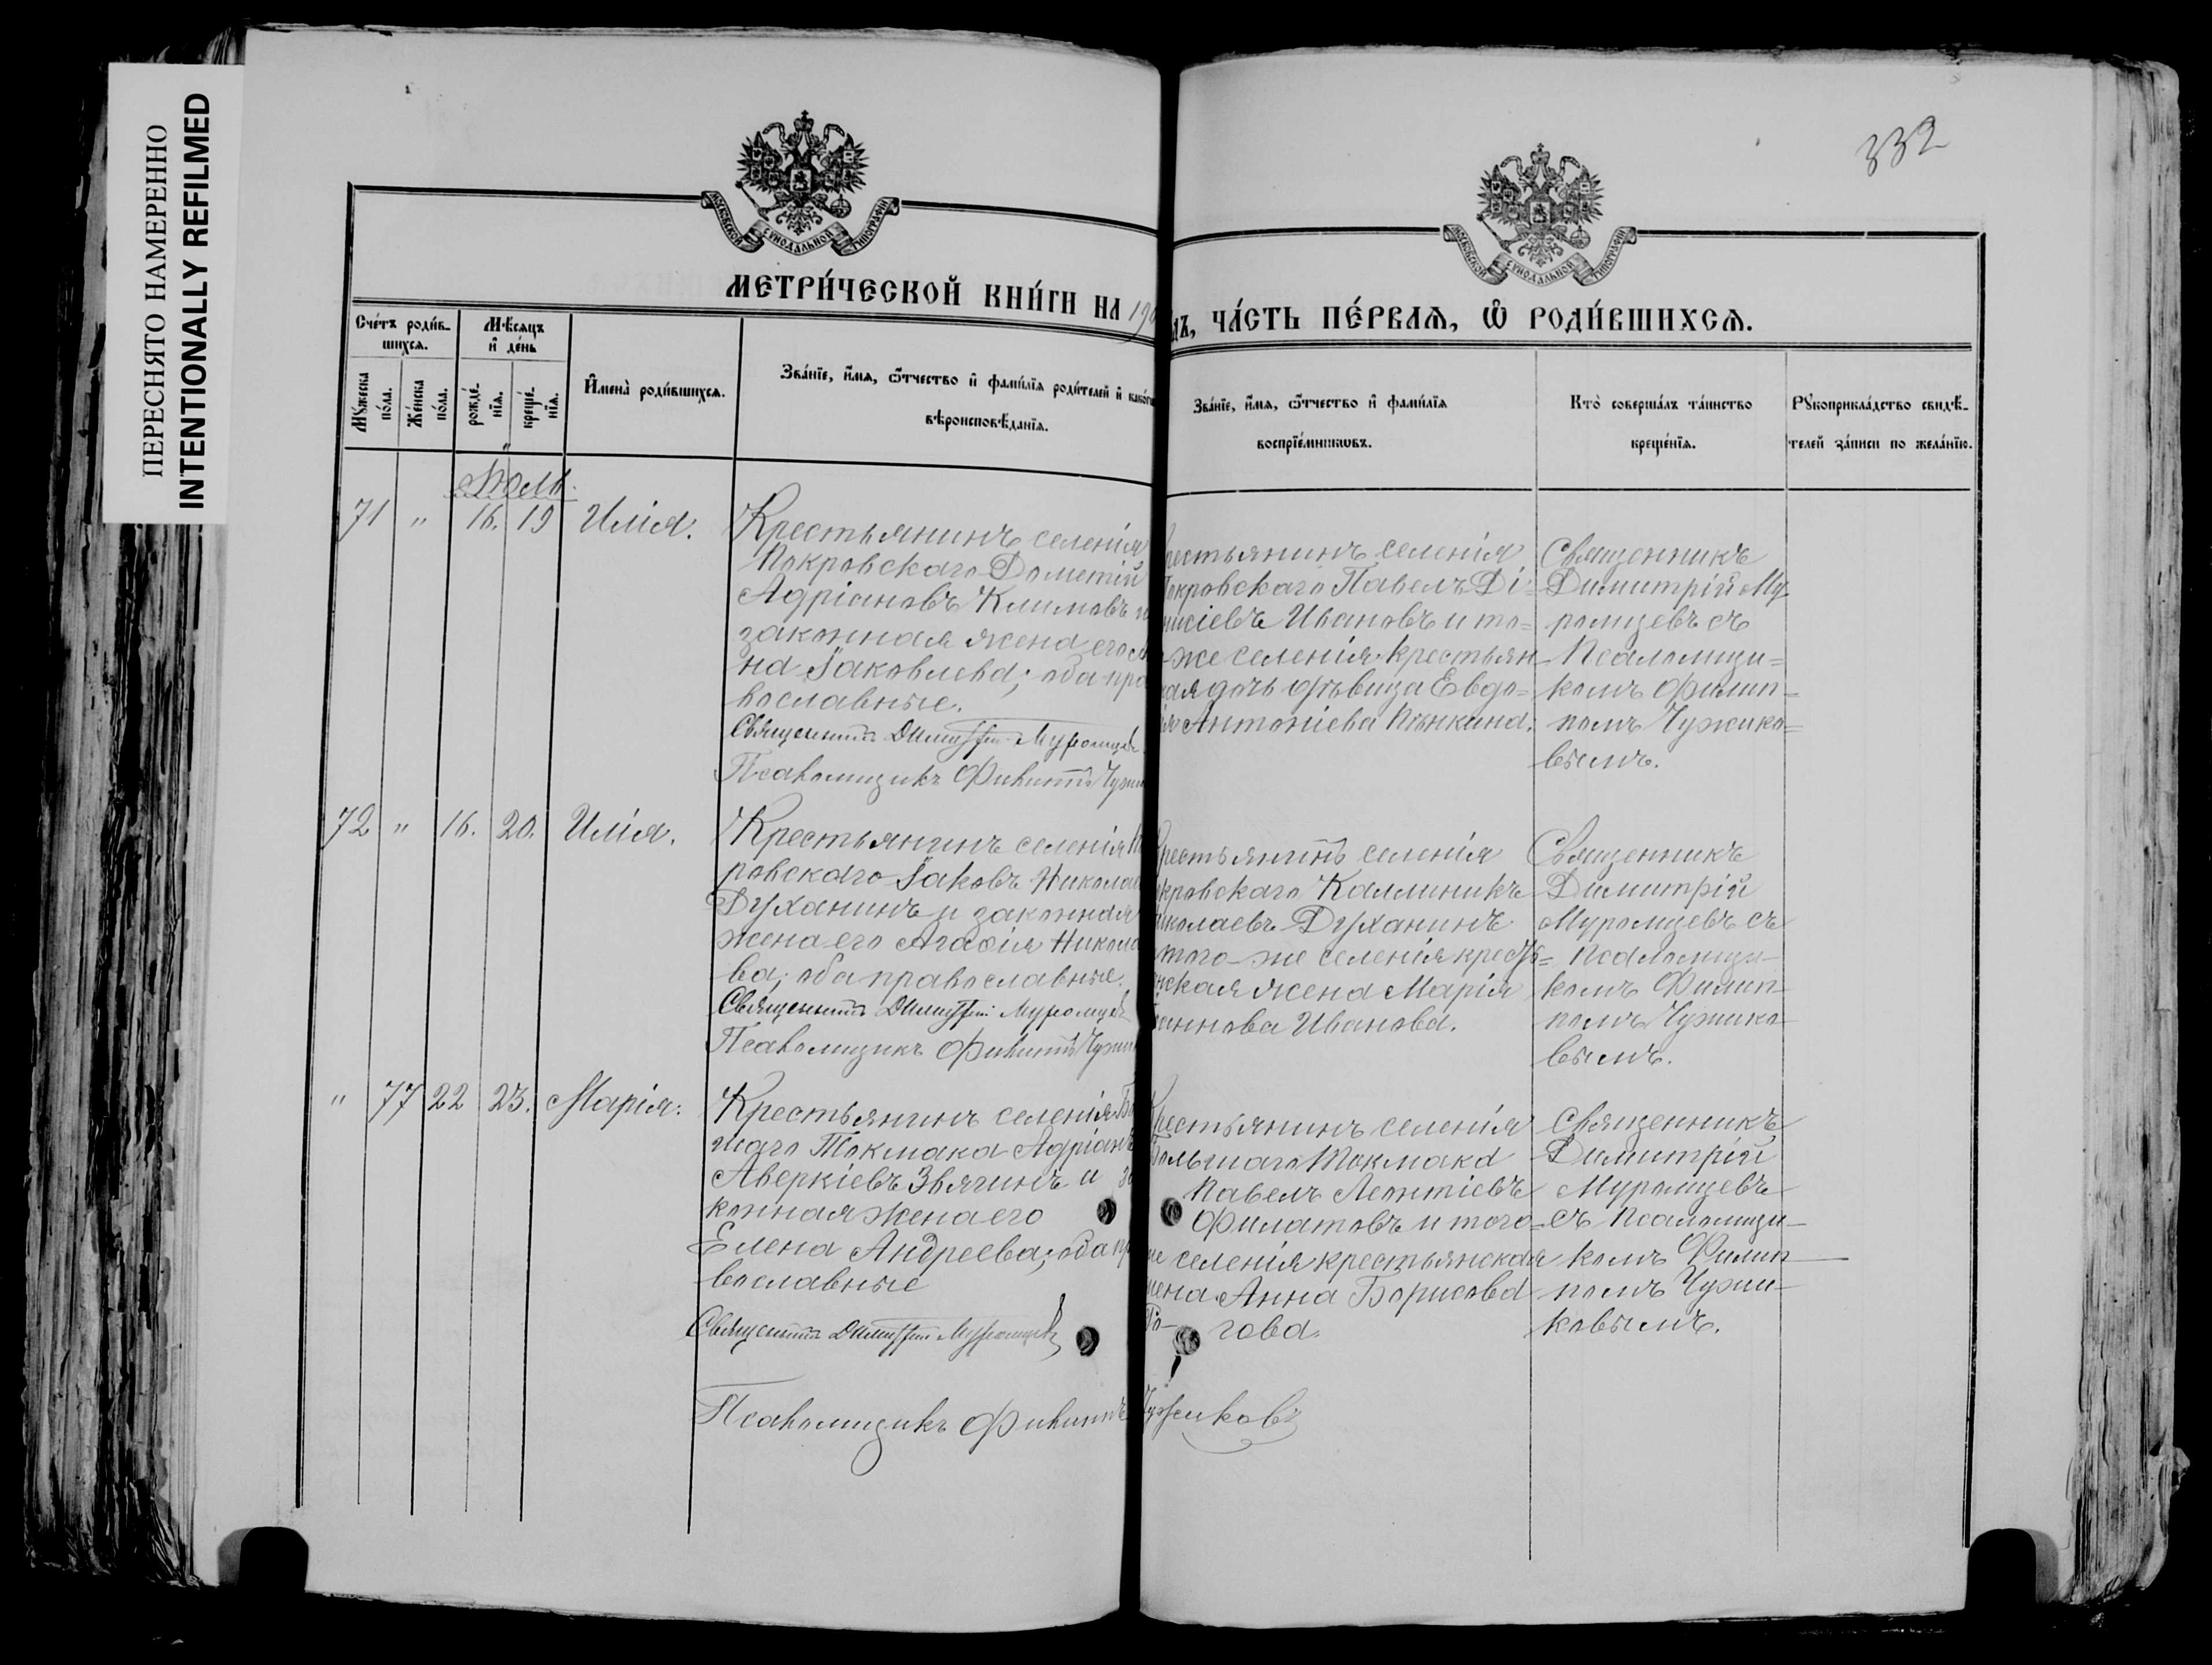 ПЕРЕСНЯТО НАМЕРЕННО
INTENTIONALLY REFILMED
332
МОСКОВСКОЙ СѴНОДАЛЬНОЙ ТИПОГРАФІИ
МОСКОВСКОЙ СѴНОДАЛЬНОЙ ТИПОГРАФІИ
МЕТРИ́ЧЕСКОЙ КНИ́ГИ НА 190
ДЪ, ЧА́СТЬ ПЕ́РВАѦ, Ѡ РОДИ́ВШИХСѦ.
Сче́тъ роди́в-
шихсѧ.
Мѣ́сѧцъ
и҆ де́нь
Мꙋ́жеска
по́ла.
Же́нска
по́ла.
рожде́-
нїѧ.
креще́-
нїѧ.
И҆мена̀ роди́вшихсѧ.
Зва́нїе, и҆́мѧ, ѻ҆́тчество и҆ фами́лїѧ роди́телей и҆ како́гѡ
вѣроисповѣ́данїѧ.
Зва́нїе, и҆́мѧ, ѻ҆́тчество и҆ фами́лїѧ
воспрїе́мникѡвъ.
Кто̀ соверша́лъ та́инство
креще́нїѧ.
Рꙋкоприкла́дство свидѣ́-
телей за́писи по жела́нїю.
Іюль.
71 " 16. 19 Илія.
Крестьянинъ селенія
Покровскаго Дометій
Адріановъ Климовъ
законная жена его
на Іаковлева; оба пра
вославные.
Священникъ Димитрій Муромцевъ
Псаломщикъ Филиппъ Чужи
рестьянинъ селенія
окровскаго Павелъ Ді-
нисіевъ Ивановъ и то=
же селенія крестьян
ая дочь дѣвица Евдо=
ія Антоніева Пѣнкина.
Священникъ
Димитрій Му
ромцевъ съ
Псаломщи=
комъ Филип=
помъ Чужико=
вымъ.
72 " 16. 20. Илія.
Крестьянинъ селенія По
ровскаго Іаковъ Никола
Духанинъ и законная
жена его Агафія Никола
ва; оба православные.
Священникъ Димитрій Муромцевъ
Псаломщикъ Филиппъ Чужи
рестьянинъ селенія
кровскаго Каллиникъ
иколаевъ Духанинъ
того-же селенія кресть=
нская жена Марія
аннова Иванова.
Священникъ
Димитрій
Муромцевъ съ
Псаломщи-
комъ Филип-
помъ Чужико-
вымъ.
" 77 22 23. Марія.
Крестьянинъ селенія Бо
шаго Токмака Адріанъ
Аверкіевъ Звягинъ и за
конная жена его
Елена Андреева; оба пр
вославные
Священникъ Димитрій Муромцевъ
Псаломщикъ Филиппъ Чужиковъ
рестьянинъ селенія
Большаго Токмака
Павелъ Леонтіевъ
Филатовъ и того-
же селенія крестьянская
жена Анна Борисова
Ро- гова.
Священникъ
Димитрій
Муромцевъ
съ Псаломщи-
комъ Филип-
помъ Чужи-
ковымъ.